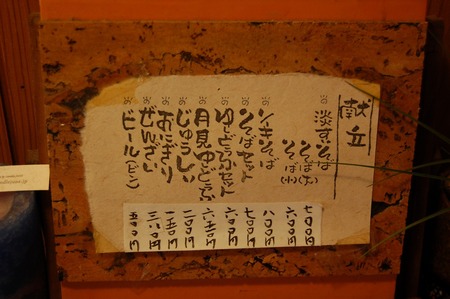 献立
そば
そば(大) 七〇〇円
そば(小) 六〇〇円
ソーキそば 八〇〇円
そばセット 七〇〇円
ゆしどうふセット 六〇〇円
月見ゆしどうふ 六五〇円
じゅうしい 二〇〇円
おにぎり 一五〇円
ぜんざい 三八〇円
ビール(ビン) 五〇〇円